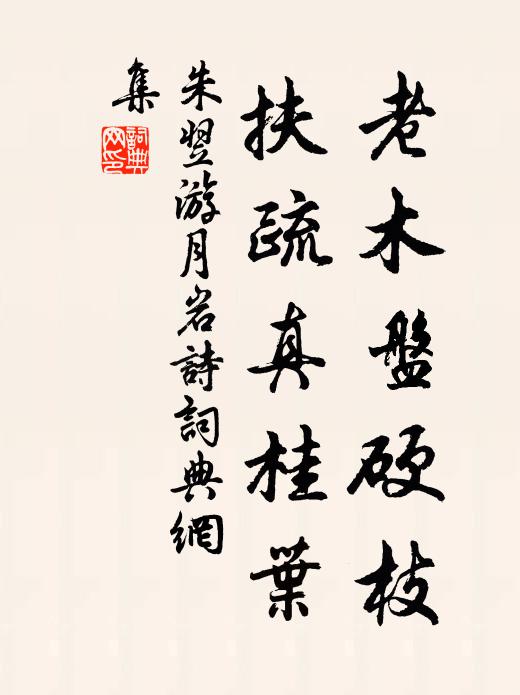 老木盤硬枝
扶疏真桂葉
朱翌游月岩詩詞典網
集
詞典網印